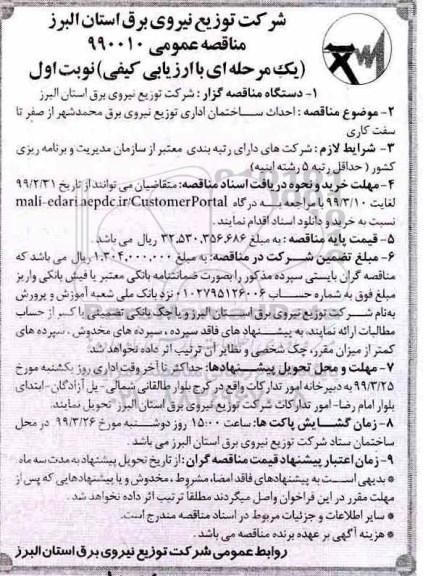 شرکت توزیع نیروی برق استان البرز
مناقصه عمومی ۹۹۰۰۱۰
(یک مرحله ای با ارزیابی کیفی) نوبت اول
۱- دستگاه مناقصه گزار: شرکت توزیع نیروی برق استان البرز
۲- موضوع مناقصه: احداث ساختمان اداری توزیع نیروی برق محمدشهر از صفر تا
سفت کاری
۳- شرایط لازم: شرکت های دارای رتبه بندی معتبر از سازمان مدیریت و برنامه ریزی
کشور (حداقل رتبه ۵ رشته ابنیه)
۴- مهلت خرید و نحوه دریافت اسناد مناقصه: متقاضیان می توانند از تاریخ ۹۹/۲/۳۱
لغایت ۹۹/۳/۱۰ با مراجعه به درگاه mali-edari.aepdc.ir/CustomerPortal
نسبت به خرید و دانلود اسناد اقدام نمایند.
۵- قیمت پایه مناقصه: به مبلغ ۳۲،۵۳۰،۳۵۶،۶۸۶ ریال می باشد.
۶- مبلغ تضمین شرکت در مناقصه: به مبلغ ۱،۳۰۴،۰۰۰،۰۰۰ ریال می باشد که
مناقصه گران بایستی سپرده مذکور را بصورت ضمانتنامه بانکی معتبر یا فیش بانکی واریز
مبلغ فوق به شماره حساب ۰۱۰۲۷۹۵۱۲۶۰۰۶ نزد بانک ملی شعبه آموزش و پرورش
به نام شرکت توزیع نیروی برق استان البرز و یا چک بانکی تضمینی یا کسر از حساب
مطالبات ارائه نمایند، به پیشنهاد های فاقد سپرده، سپرده های مخدوش، سپرده های
کمتر از میزان مقرر، چک شخصی و نظایر آن ترتیب اثر داده نخواهد شد.
۷- مهلت و محل تحویل پیشنهادها: حداکثر تا آخر وقت اداری روز یکشنبه مورخ
۹۹/۳/۲۵ به دبیرخانه امور تدارکات واقع در کرج بلوار طالقانی شمالی-پل آزادگان-ابتدای
بلوار امام رضا-امور تدارکات شرکت توزیع نیروی برق استان البرز تحویل نمایند.
۸- زمان گشایش پاکت ها: ساعت ۱۵:۰۰ روز دوشنبه مورخ ۹۹/۳/۲۶ در محل
ساختمان ستاد شرکت توزیع نیروی برق استان البرز می باشد.
۹- زمان اعتبار پیشنهاد قیمت مناقصه گران: از تاریخ تحویل پیشنهاد به مدت سه ماه
* بدیهی است به پیشنهادهای فاقد امضاء، مشروط، مخدوش و یا پیشنهادهایی که پس از
مهلت مقرر در این فراخوان واصل میگردند مطلقا ترتیب اثر داده نخواهد شد.
* سایر اطلاعات و جزئیات مربوط در اسناد مناقصه مندرج است.
* هزینه آگهی بر عهده برنده مناقصه می باشد.
روابط عمومی شرکت توزیع نیروی برق استان البرز